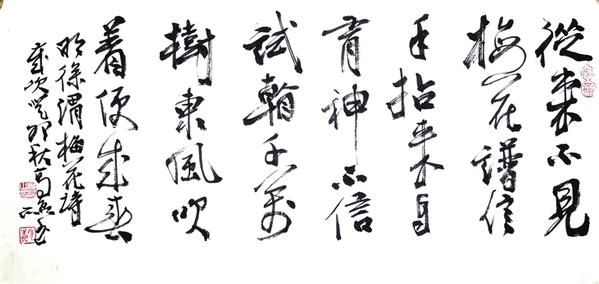 從來不見
梅花譜信
手拈來自
有神不信
試看千萬
樹東風吹
着便成春
明徐渭梅花詩
歲次癸卯秋